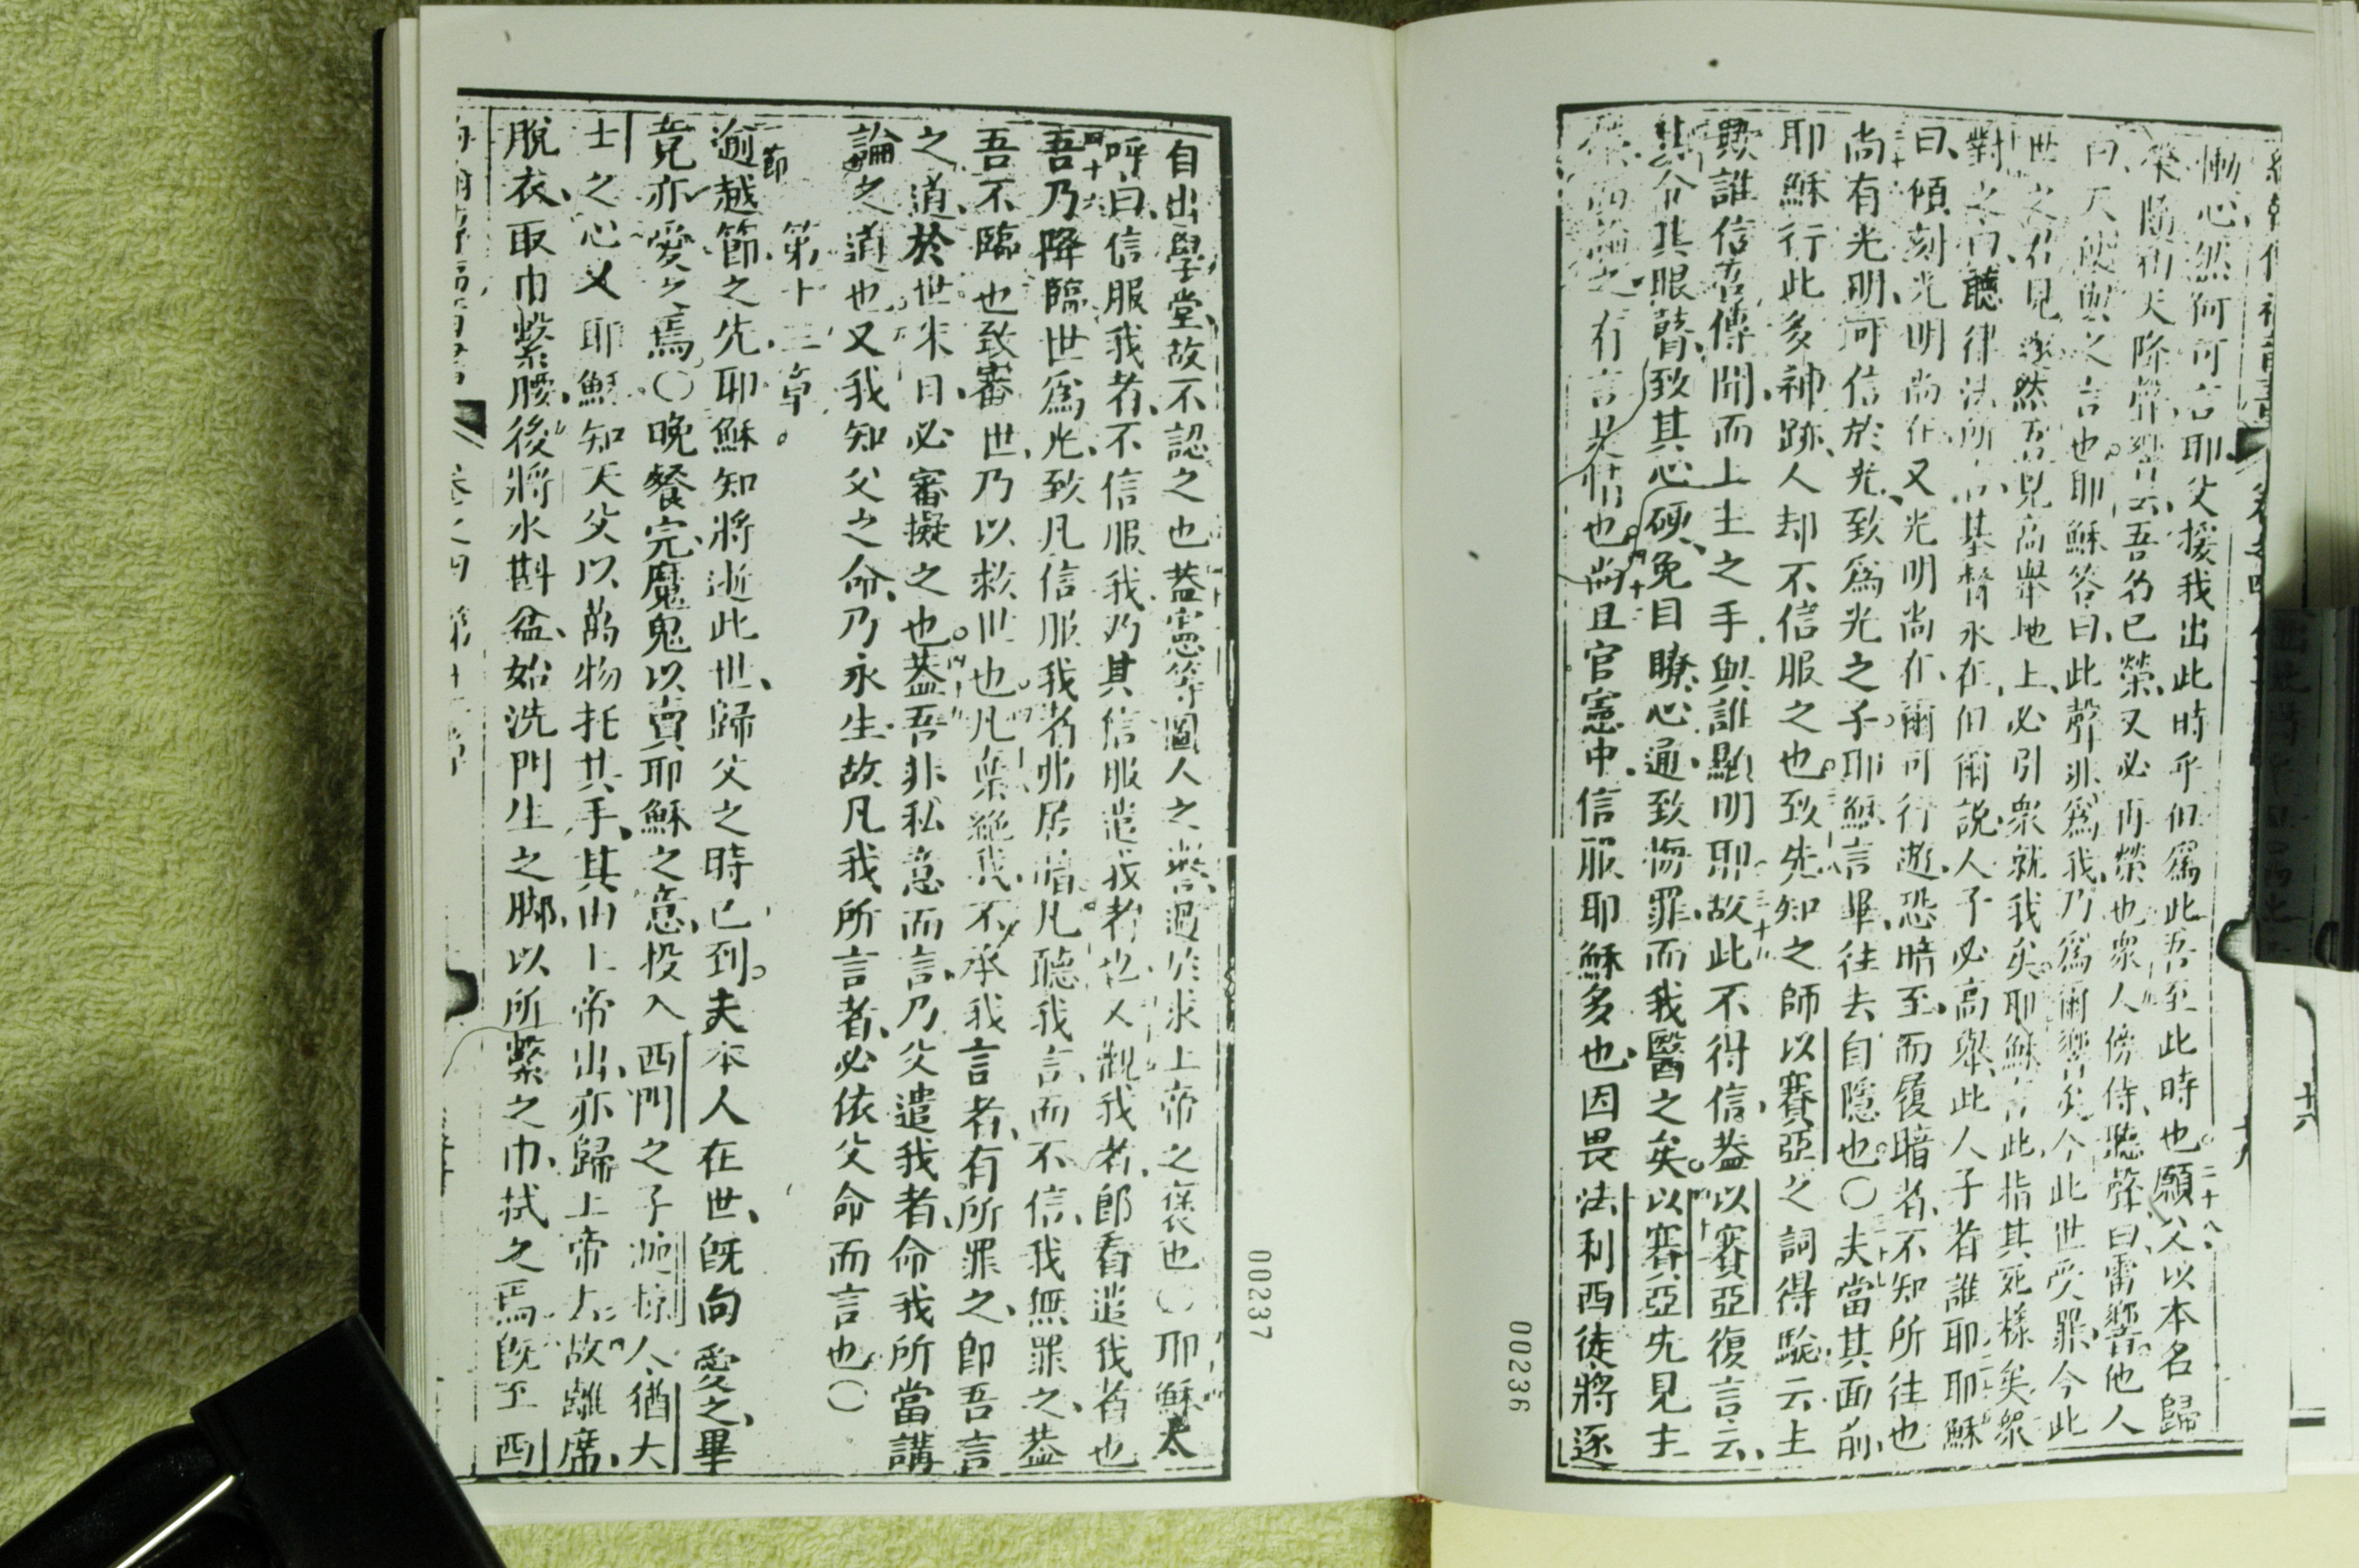 慟心然何可言耶父援我出此時乎但爲此吾至此時也願父以本名歸
榮隨有天降聲響云吾名已榮又必再榮也衆人傍侍聽聲曰雷響他人
曰天使與之言也耶穌答曰此聲非爲我乃爲爾響矣今此世受罪今此
世之君見逐然吾見高舉地上必引衆就我矣耶穌言此指其死樣矣衆
對之曰聽律法所言基督永在但爾說人子必高舉此人子者誰耶耶穌
曰傾刻光明尚在又光明尚在爾可行遊恐暗至而履暗者不知所往也
尚有光明可信於光致爲光之子耶穌言畢往去自隱也〇夫當其面前
耶穌行此多神跡人却不信服之也致先知之師以賽亞之詞得驗云主
歟誰信吾傳聞而上主之手與誰顯明耶故此不得信蓋以賽亞復言云
其令其眼瞽致其心硬免目瞭心通致悔罪而我醫之矣以賽亞先見主
榮而論之有言是情也尚且官憲中信服耶穌多也因畏法利西徒將逐
00236
自出學堂故不認之也蓋憲等圖人之譽過於求上帝之褒也〇耶穌太
呼曰信服我者不信服我乃其信服遣我者也又觀我者郎看遣我者也
吾乃降臨世爲光致凡信服我者弗居暗凡聽我言而不信我無罪之蓋
吾不臨也致審世乃以救世也凡棄絕我不承我言者有所罪之即吾言
之道於世末日必審擬之也蓋吾非私意而言乃父遣我者命我所當講
論之道也又我知父之命乃永生故凡我所言者必依父命而言也〇
第十三章
節
逾越節之先耶穌知將逝此世歸父之時已到夫本人在世既向愛之畢
竟亦愛之焉〇晚餐完魔鬼以賣耶穌之意投入西門之子人猶大
士之心又耶穌知天父以萬物托其手其由上帝出亦歸上帝去故離席
脫衣取巾繫腰後將水斟盆始洗門生之脚以所繫之巾拭之焉既至西
00237